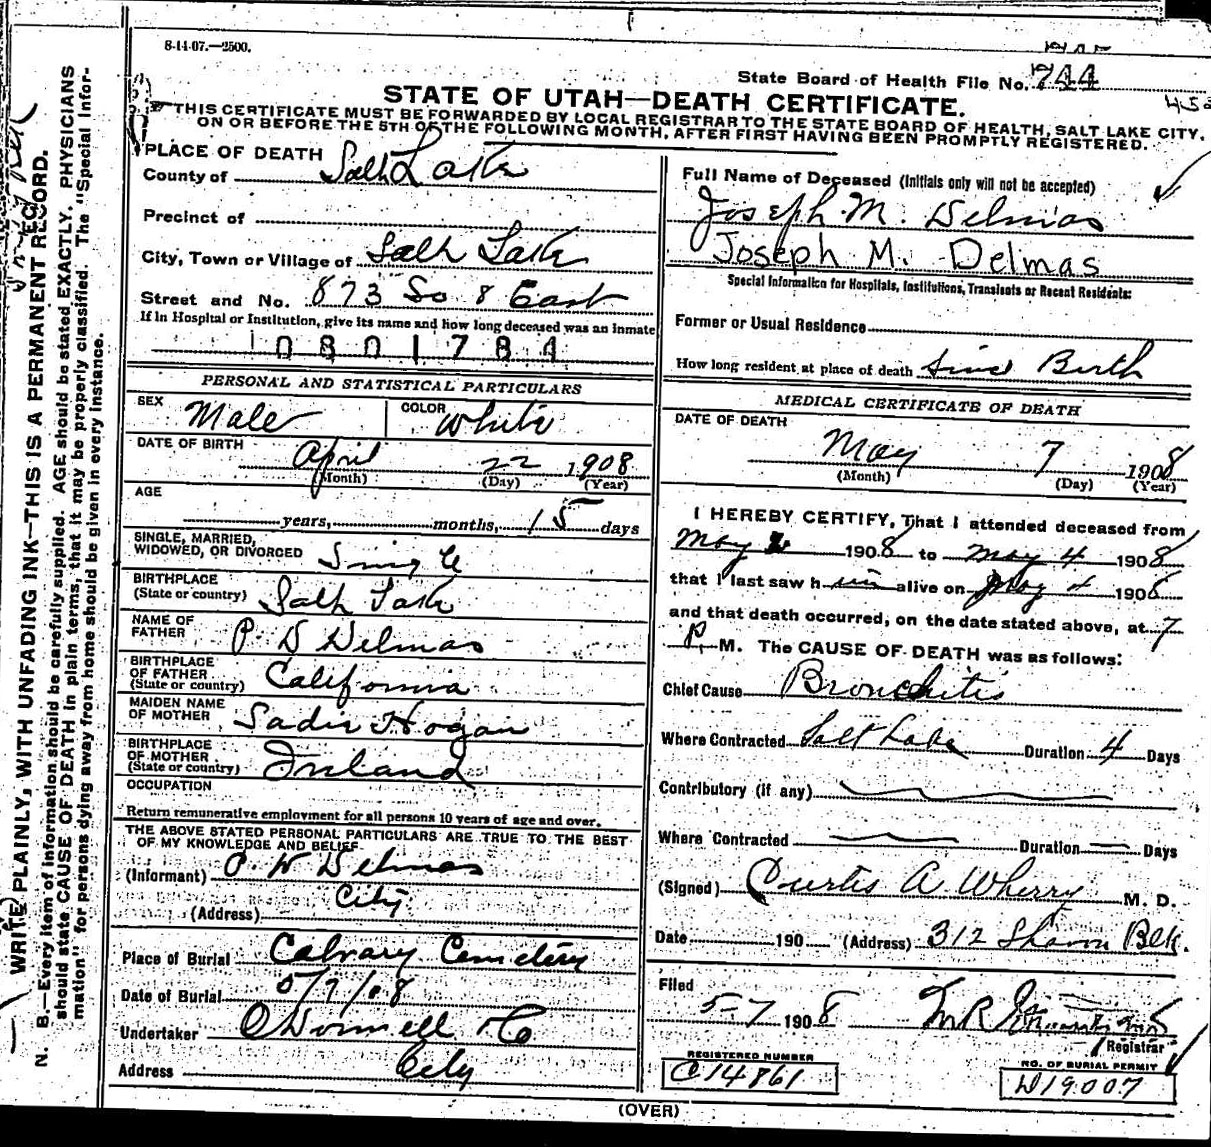 8-14-07.—2500.
State Board of Health File No. 744
STATE OF UTAH—DEATH CERTIFICATE.
THIS CERTIFICATE MUST BE FORWARDED BY LOCAL REGISTRAR TO THE STATE BOARD OF HEALTH, SALT LAKE CITY,
ON OR BEFORE THE 5TH OF THE FOLLOWING MONTH, AFTER FIRST HAVING BEEN PROMPTLY REGISTERED.
WRITE PLAINLY, WITH UNFADING INK—THIS IS A PERMANENT RECORD.
N. B.—Every item of information should be carefully supplied. AGE should be stated EXACTLY. PHYSICIANS
should state CAUSE OF DEATH in plain terms, that it may be properly classified. The "Special Infor-
mation" for persons dying away from home should be given in every instance.
PLACE OF DEATH
County of Salt Lake
Precinct of
City, Town or Village of Salt Lake
Street and No. 873 So 8 East
If in Hospital or Institution, give its name and how long deceased was an inmate
0801784
PERSONAL AND STATISTICAL PARTICULARS
SEX Male COLOR White
DATE OF BIRTH
April 22 1908
(Month) (Day) (Year)
AGE
years, months, 15 days
SINGLE, MARRIED,
WIDOWED, OR DIVORCED Single
BIRTHPLACE
(State or country) Salt Lake
NAME OF
FATHER P D Delmas
BIRTHPLACE
OF FATHER
(State or country) California
MAIDEN NAME
OF MOTHER Sadie Hogan
BIRTHPLACE
OF MOTHER
(State or country) Ireland
OCCUPATION
Return remunerative employment for all persons 10 years of age and over.
THE ABOVE STATED PERSONAL PARTICULARS ARE TRUE TO THE BEST
OF MY KNOWLEDGE AND BELIEF
(Informant) P. W Delmas
(Address) City
Place of Burial Calvary Cemetery
Date of Burial 5/7/08
Undertaker O'Donnell & Co
Address City
Full Name of Deceased (Initials only will not be accepted)
Joseph M. Delmas
Joseph M. Delmas
Special Information for Hospitals, Institutions, Transients or Recent Residents:
Former or Usual Residence
How long resident at place of death Since Birth
MEDICAL CERTIFICATE OF DEATH
DATE OF DEATH
May 7 1908
(Month) (Day) (Year)
I HEREBY CERTIFY, That I attended deceased from
May 1908 to May 4 1908
that I last saw him alive on May 4 1908
and that death occurred, on the date stated above, at 7
P. M. The CAUSE OF DEATH was as follows:
Chief Cause Bronchitis
Where Contracted Salt Lake Duration 4 Days
Contributory (if any)
Where Contracted Duration Days
(Signed) Curtis A Wherry M. D.
Date 190 (Address) 312 Blk.
Filed
5-7 1908
Registrar
REGISTERED NUMBER
C14861
NO. OF BURIAL PERMIT
D19007
(OVER)